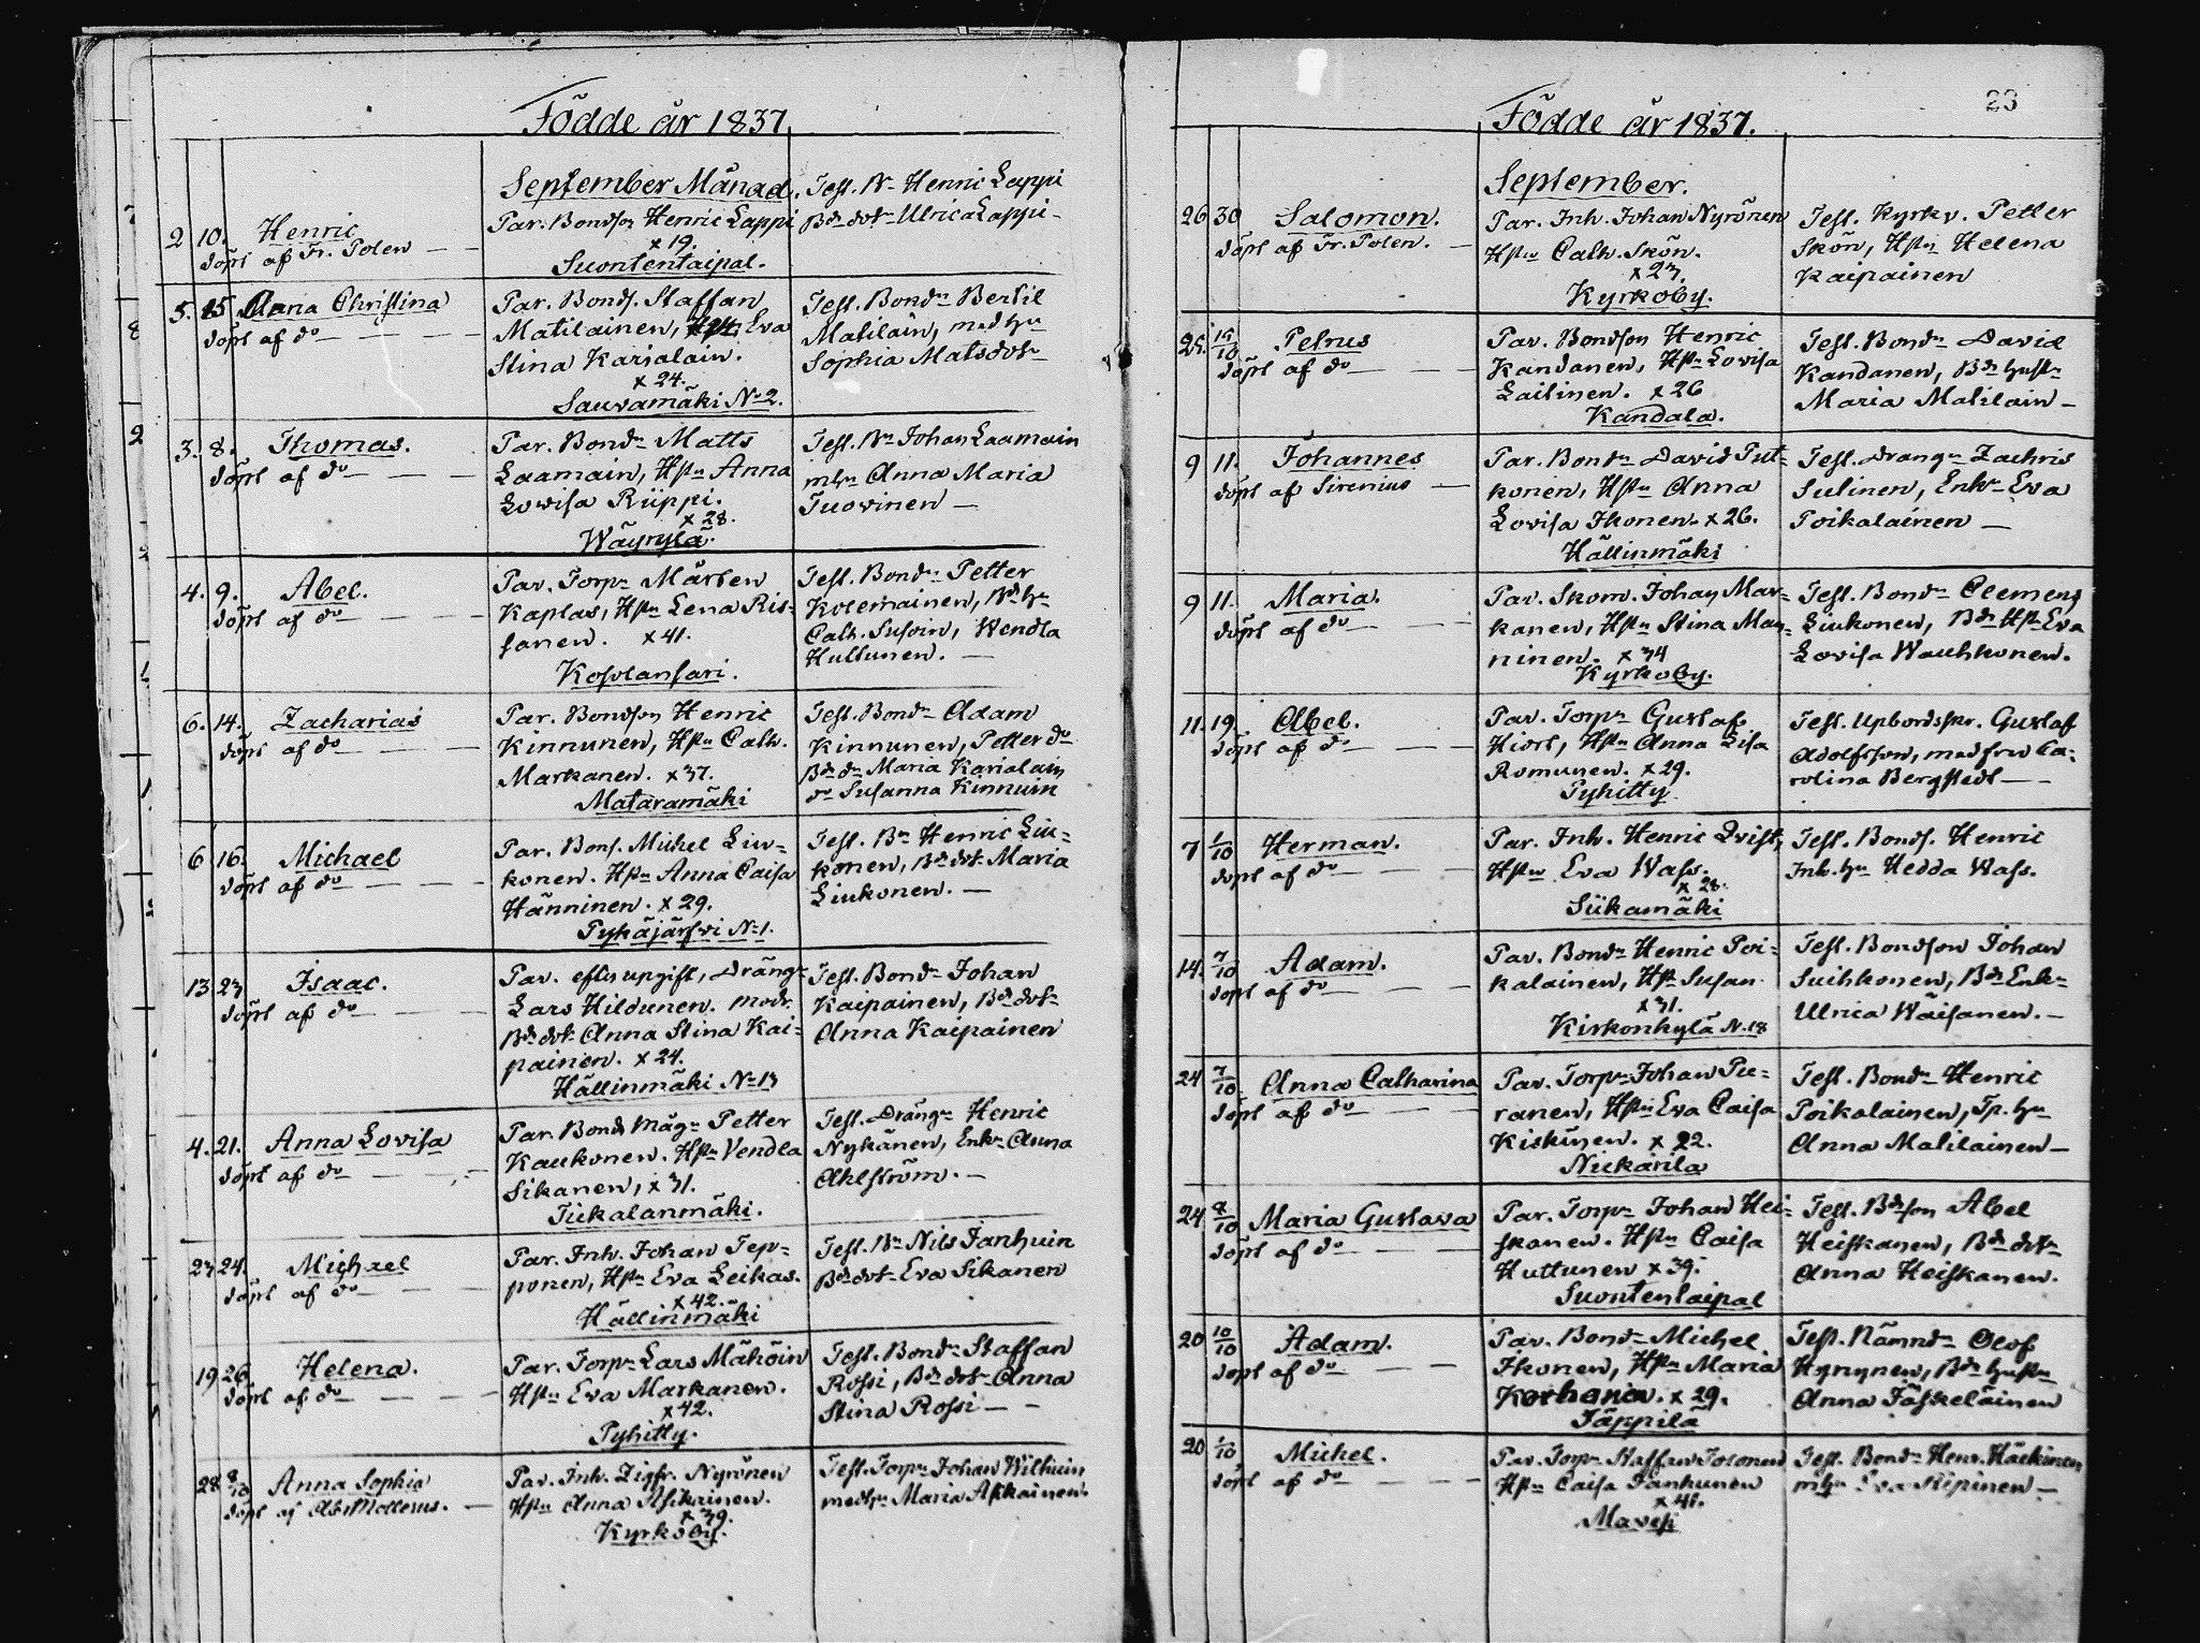 Födde år 1837.
September Månad.
2 10. Henric
döpt af Fr. Polen
Par. Bondson Henric Lappi
x 19.
Suontentaipal.
Test. Bn Henric Lappi
Bd: dotr Ulrica Lappi
5. 15 Anna Christina
döpt af do
Par. Bonds. Staffan
Matilainen, Eva
Stina Karialain.
x 24.
Sauvamäki No 2.
Test. Bondn Bertil
Matilain, med hu
Sophia Matsdotr
3. 8. Thomas.
döpt af do
Par. Bondn Matts
Laamain, Hstn Anna
Lovisa Riippi.
x 28.
Wäyrylä.
Test. Bn Johan Laamain
mhu Anna Maria
Tuovinen
4. 9. Abel.
döpt af do
Par. Torpn Mårten
Kaplas, Hstn Lena Ris-
sanen. x 41.
Kosolansari.
Test. Bondn Petter
Kolemainen, Bd hu
Cath. Susoin, Wendla
Huttunen.
6. 14. Zacharias
döpt af do
Par. Bondson Henric
Kinnunen, Hstn Cath.
Markanen. x 37.
Mataramäki
Test. Bondn Adam
Kinnunen, Petter do
Bd: dn Maria Karialain
do Susanna Kinnuin
6 16. Michael
döpt af do
Par. Bons. Michel Liu-
konen. Hstn Anna Caisa
Hänninen. x 29.
Pyhäjärfvi No 1.
Test. Bn Henric Liu-
konen, Bd: dotr Maria
Liukonen.
13 23 Isaac.
döpt af do
Par. efter upgift, Drängn
Lars Hildunen. Modr.
Bd: dotr Anna Stina Kai-
painen. x 24.
Hällinmäki No 13
Test. Bondn Johan
Kaipainen, Bd: dotr
Anna Kaipainen
4. 21. Anna Lovisa
döpt af do
Par. Bonds Mågn Petter
Kaukonen. Hstn Vendla
Sikanen, x 31.
Tiekalanmäki.
Test. Drängn Henric
Nykänen, Enkn Anna
Ahlström.
23 24. Michael
döpt af do
Par. Inh. Johan Tep-
ponen, Hstn Eva Leikas.
x 42.
Hällinmäki
Test. Bn Nils Janhuin
Bd: dotr Eva Sikanen
19 26. Helena.
döpt af do
Par. Torpn Lars Mähöin
Hstn Eva Markanen.
x 42.
Pyhitty.
Test. Bondn Staffan
Rossi, Bd: dotr Anna
Stina Rossi
28 8/10 Anna Sophia
döpt af Abr Mollerus.
Par. Inh. Zigfr. Nyrönen
Hstn Anna Asikainen.
x 39.
Kyrkoby.
Test. Torpn Johan Wilhuin
medhu Maria Asikainen.
23
Födde år 1837.
September.
26 30 Salomon.
döpt af Fr. Polen.
Par. Inh. Johan Nyrönen
Hstn Cath. Skön.
x 23.
Kyrkoby.
Test. Kyrkv. Petter
Skön, Hstn Helena
Kaipainen
25. 15/10 Petrus
döpt af do
Par. Bondson Henric
Kandanen, Hstn Lovisa
Laitinen. x 26
Kandala.
Test. Bondn David
Kandanen, Bd: hustn
Maria Matilain
9 11. Johannes
döpt af Sirenius
Par. Bondn David Put-
konen, Hstn Anna
Lovisa Ikonen. x 26.
Hällinmäki
Test. Drangn Zachris
Sutinen, Enkn Eva
Poikalainen
9 11. Maria.
döpt af do
Par. Skom. Johan Mar-
kanen, Hstn Stina Man-
ninen. x 34
Kyrkoby.
Test. Bondn Clemens
Liukonen, Bd: Hstn Eva
Lovisa Wauhkonen.
11. 19. Abel.
döpt af do
Par. Torpn Gustaf
Hiort, Hstn Anna Lisa
Romunen. x 29.
Pyhitty
Test. Upbordsskr. Gustaf
Adolfsson, med fru Ca-
rolina Bergstedt
7 1/10 Herman.
döpt af do
Par. Inh. Henric Qvist,
Hstn Eva Wass.
x 28.
Siikamäki
Test. Bonds. Henric
Inh. hu Hedda Wass.
14. 7/10 Adam.
döpt af do
Par. Bondn Henric Poi-
kalainen, Hstn Susan
x 31.
Kirkonkylä N. 18
Test. Bondson Johan
Suihkonen, Bd: Enk-
Ulrica Wäisanen.
24 7/10 Anna Catharina
döpt af do
Par. Torpn Johan Pu-
ranen, Hstn Eva Caisa
Kiskinen. x 22.
Niekarila
Test. Bondn Henric
Poikalainen, Tp. hu
Anna Matilainen
24 8/10 Maria Gustava
döpt af do
Par. Torpn Johan Hei-
skanen. Hstn Caisa
Huttunen x 39.
Suontentaipal
Test. Bdson Abel
Heiskanen, Bd: dotr
Anna Heiskanen.
20 10/10 Adam.
döpt af do
Par. Bondn Michel
Ikonen, Hstn Maria
Korhonen. x 29.
Jäppilä
Test. Nämndn Olof
Hynynen, Bd: hustn
Anna Jäskeläinen
20 1/10 Michel.
döpt af do
Par. Torpn Staffan Tolonen
Hstn Caisa Janhunen
x 41.
Mavesi
Test. Bondn Henr. Häckinen
mhu Eva Ripinen